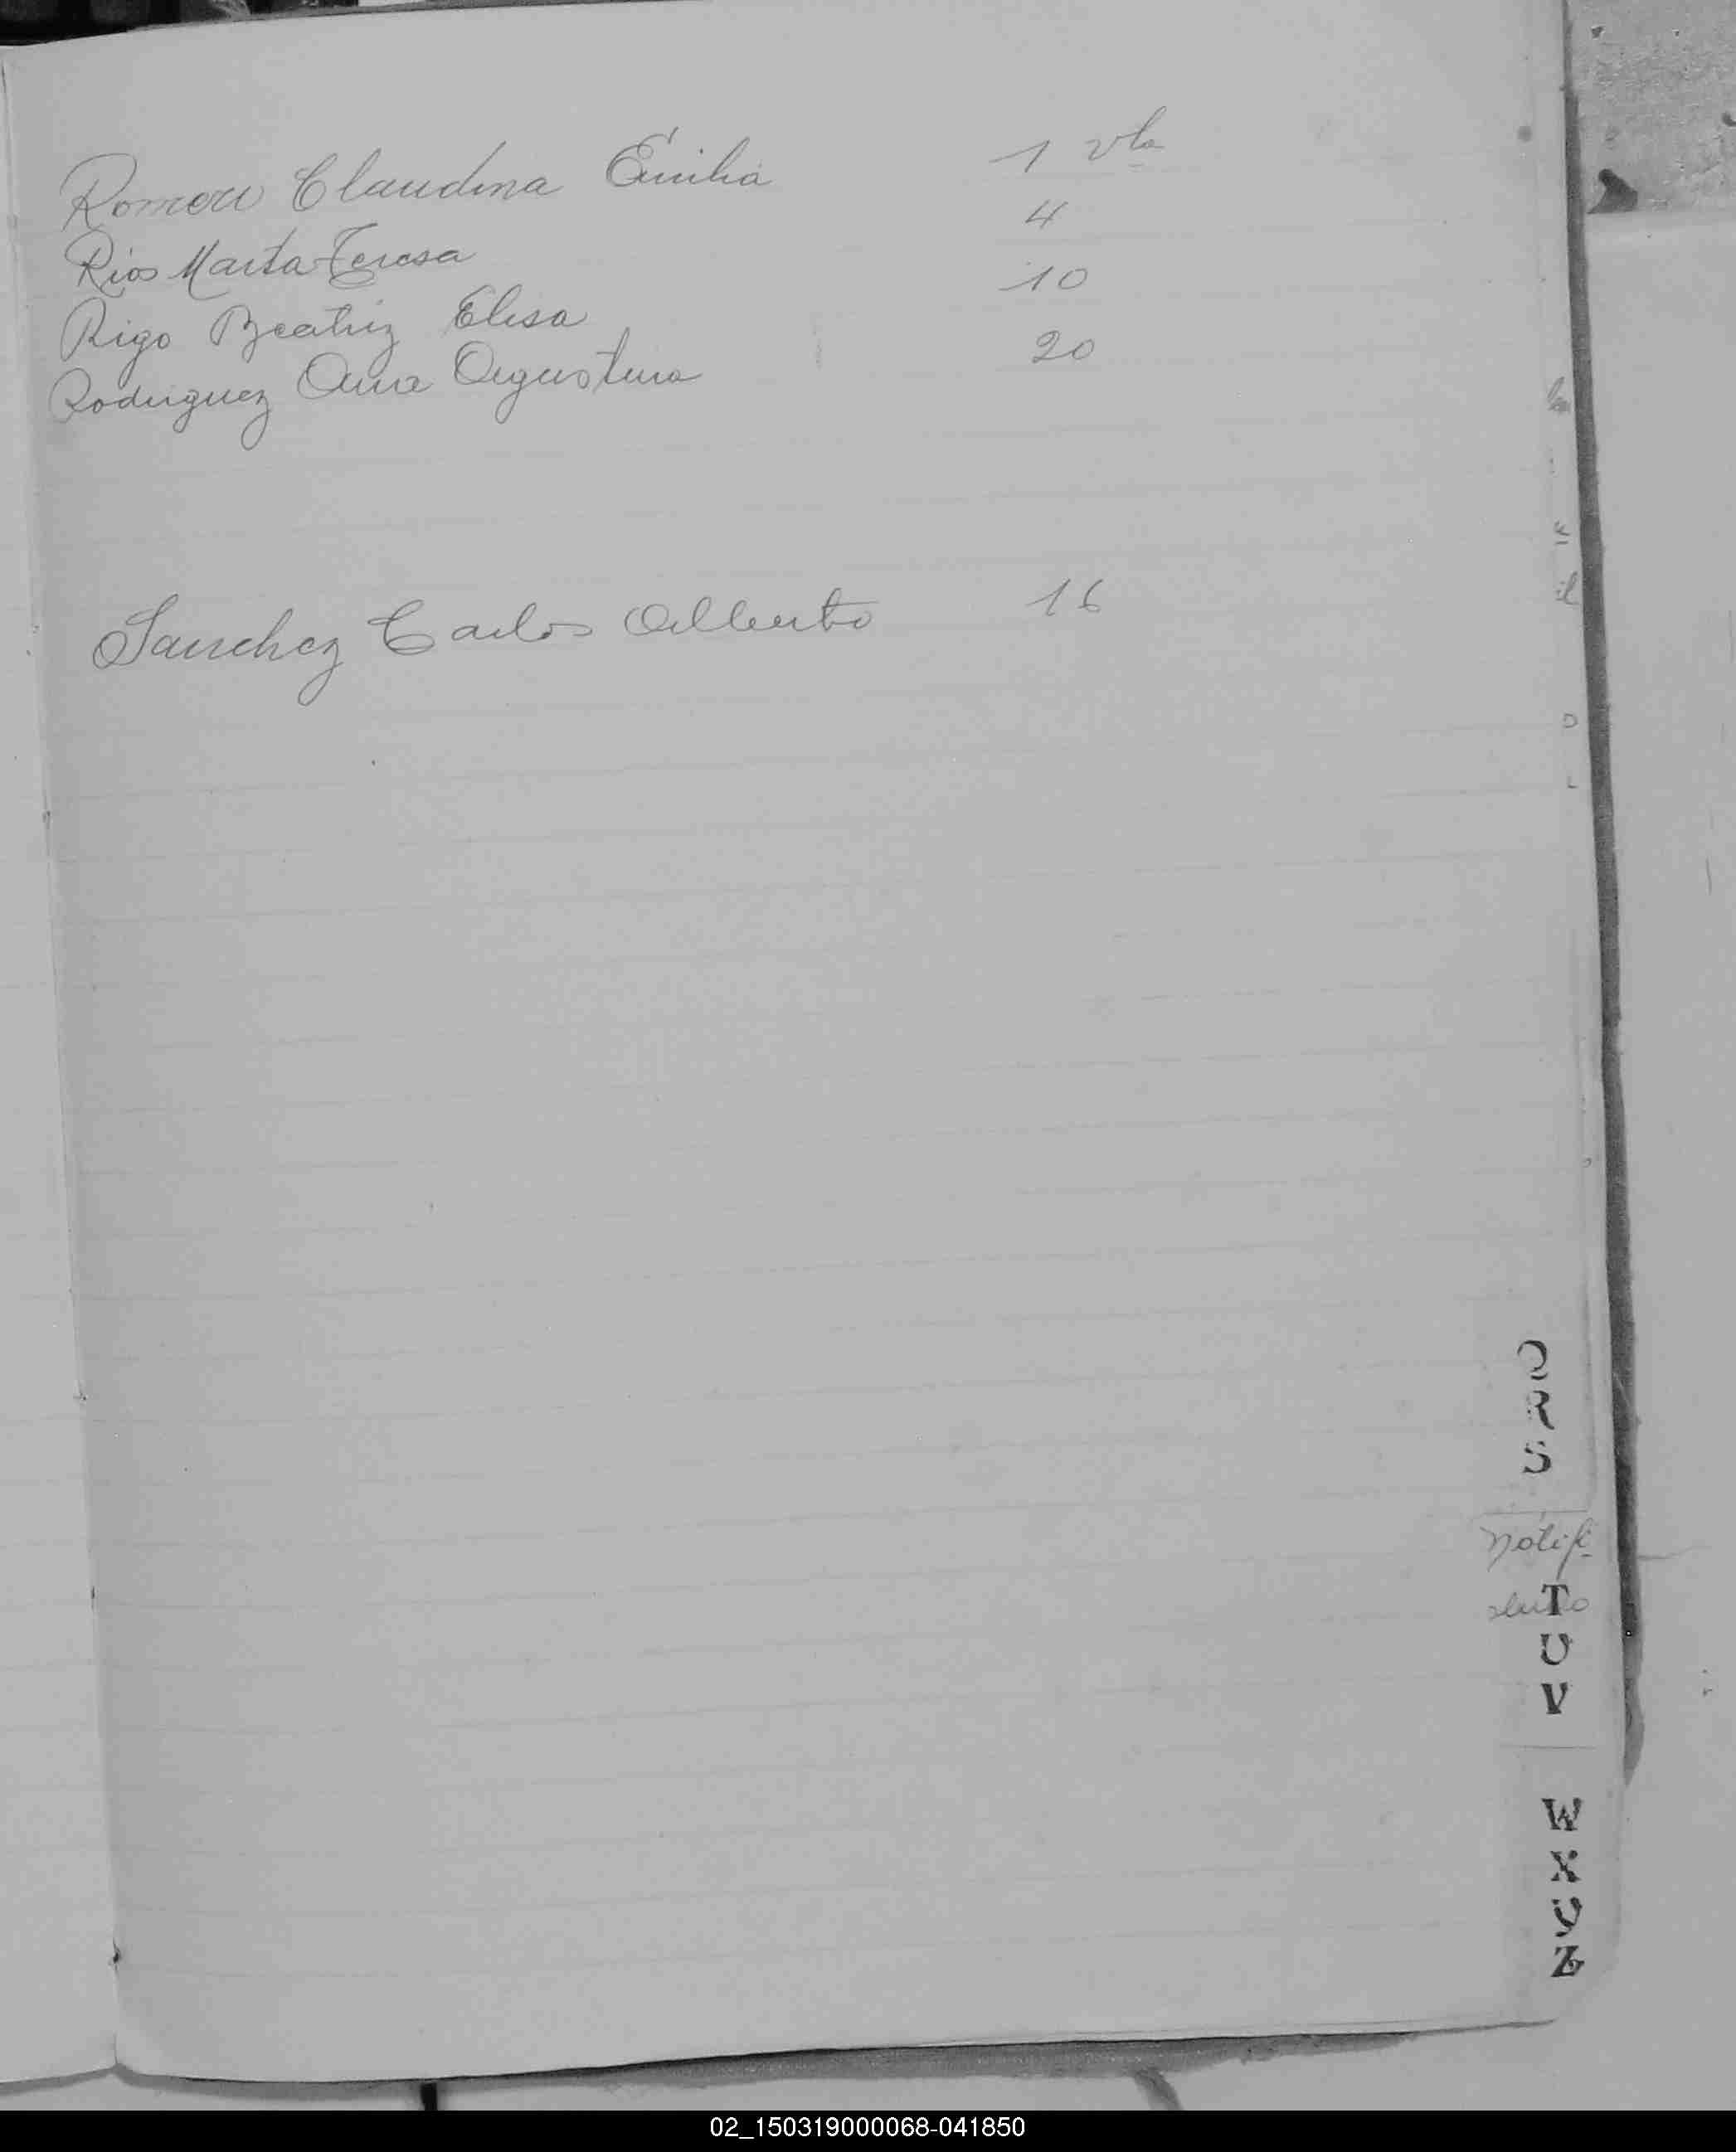 Claudina Emilia 1 vta
Rios Marta Teresa 4
Rigo Beatriz Elisa 10
Rodriguez Ana Agustina 20
Sanchez Carlos Alberto 16
Q
R
S
T
U
V
W
X
Y
Z
02_150319000068-041850